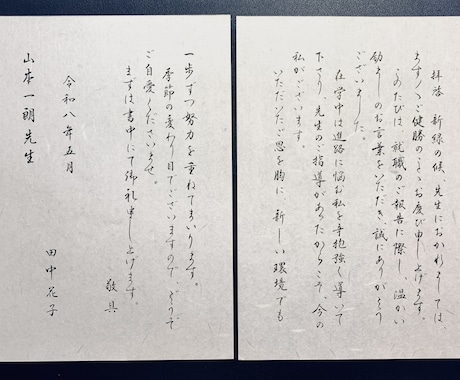 拝啓 新緑の候、先生におかれましては
ますますご健勝のこととお慶び申し上げます。
このたびは、就職のご報告に際し、温かい
励ましのお言葉をいただき、誠にありがとう
ございました。
在学中は進路に悩む私を辛抱強く導いて
下さり、先生のご指導があったからこそ、今の
私がございます。
いただいたご恩を胸に、新しい環境でも
一歩ずつ努力を重ねてまいります。
季節の変わり目でございますので、どうぞ
ご自愛くださいませ。
まずは書中にて御礼申し上げます。
敬具
令和八年五月
田中花子
山本一朗先生